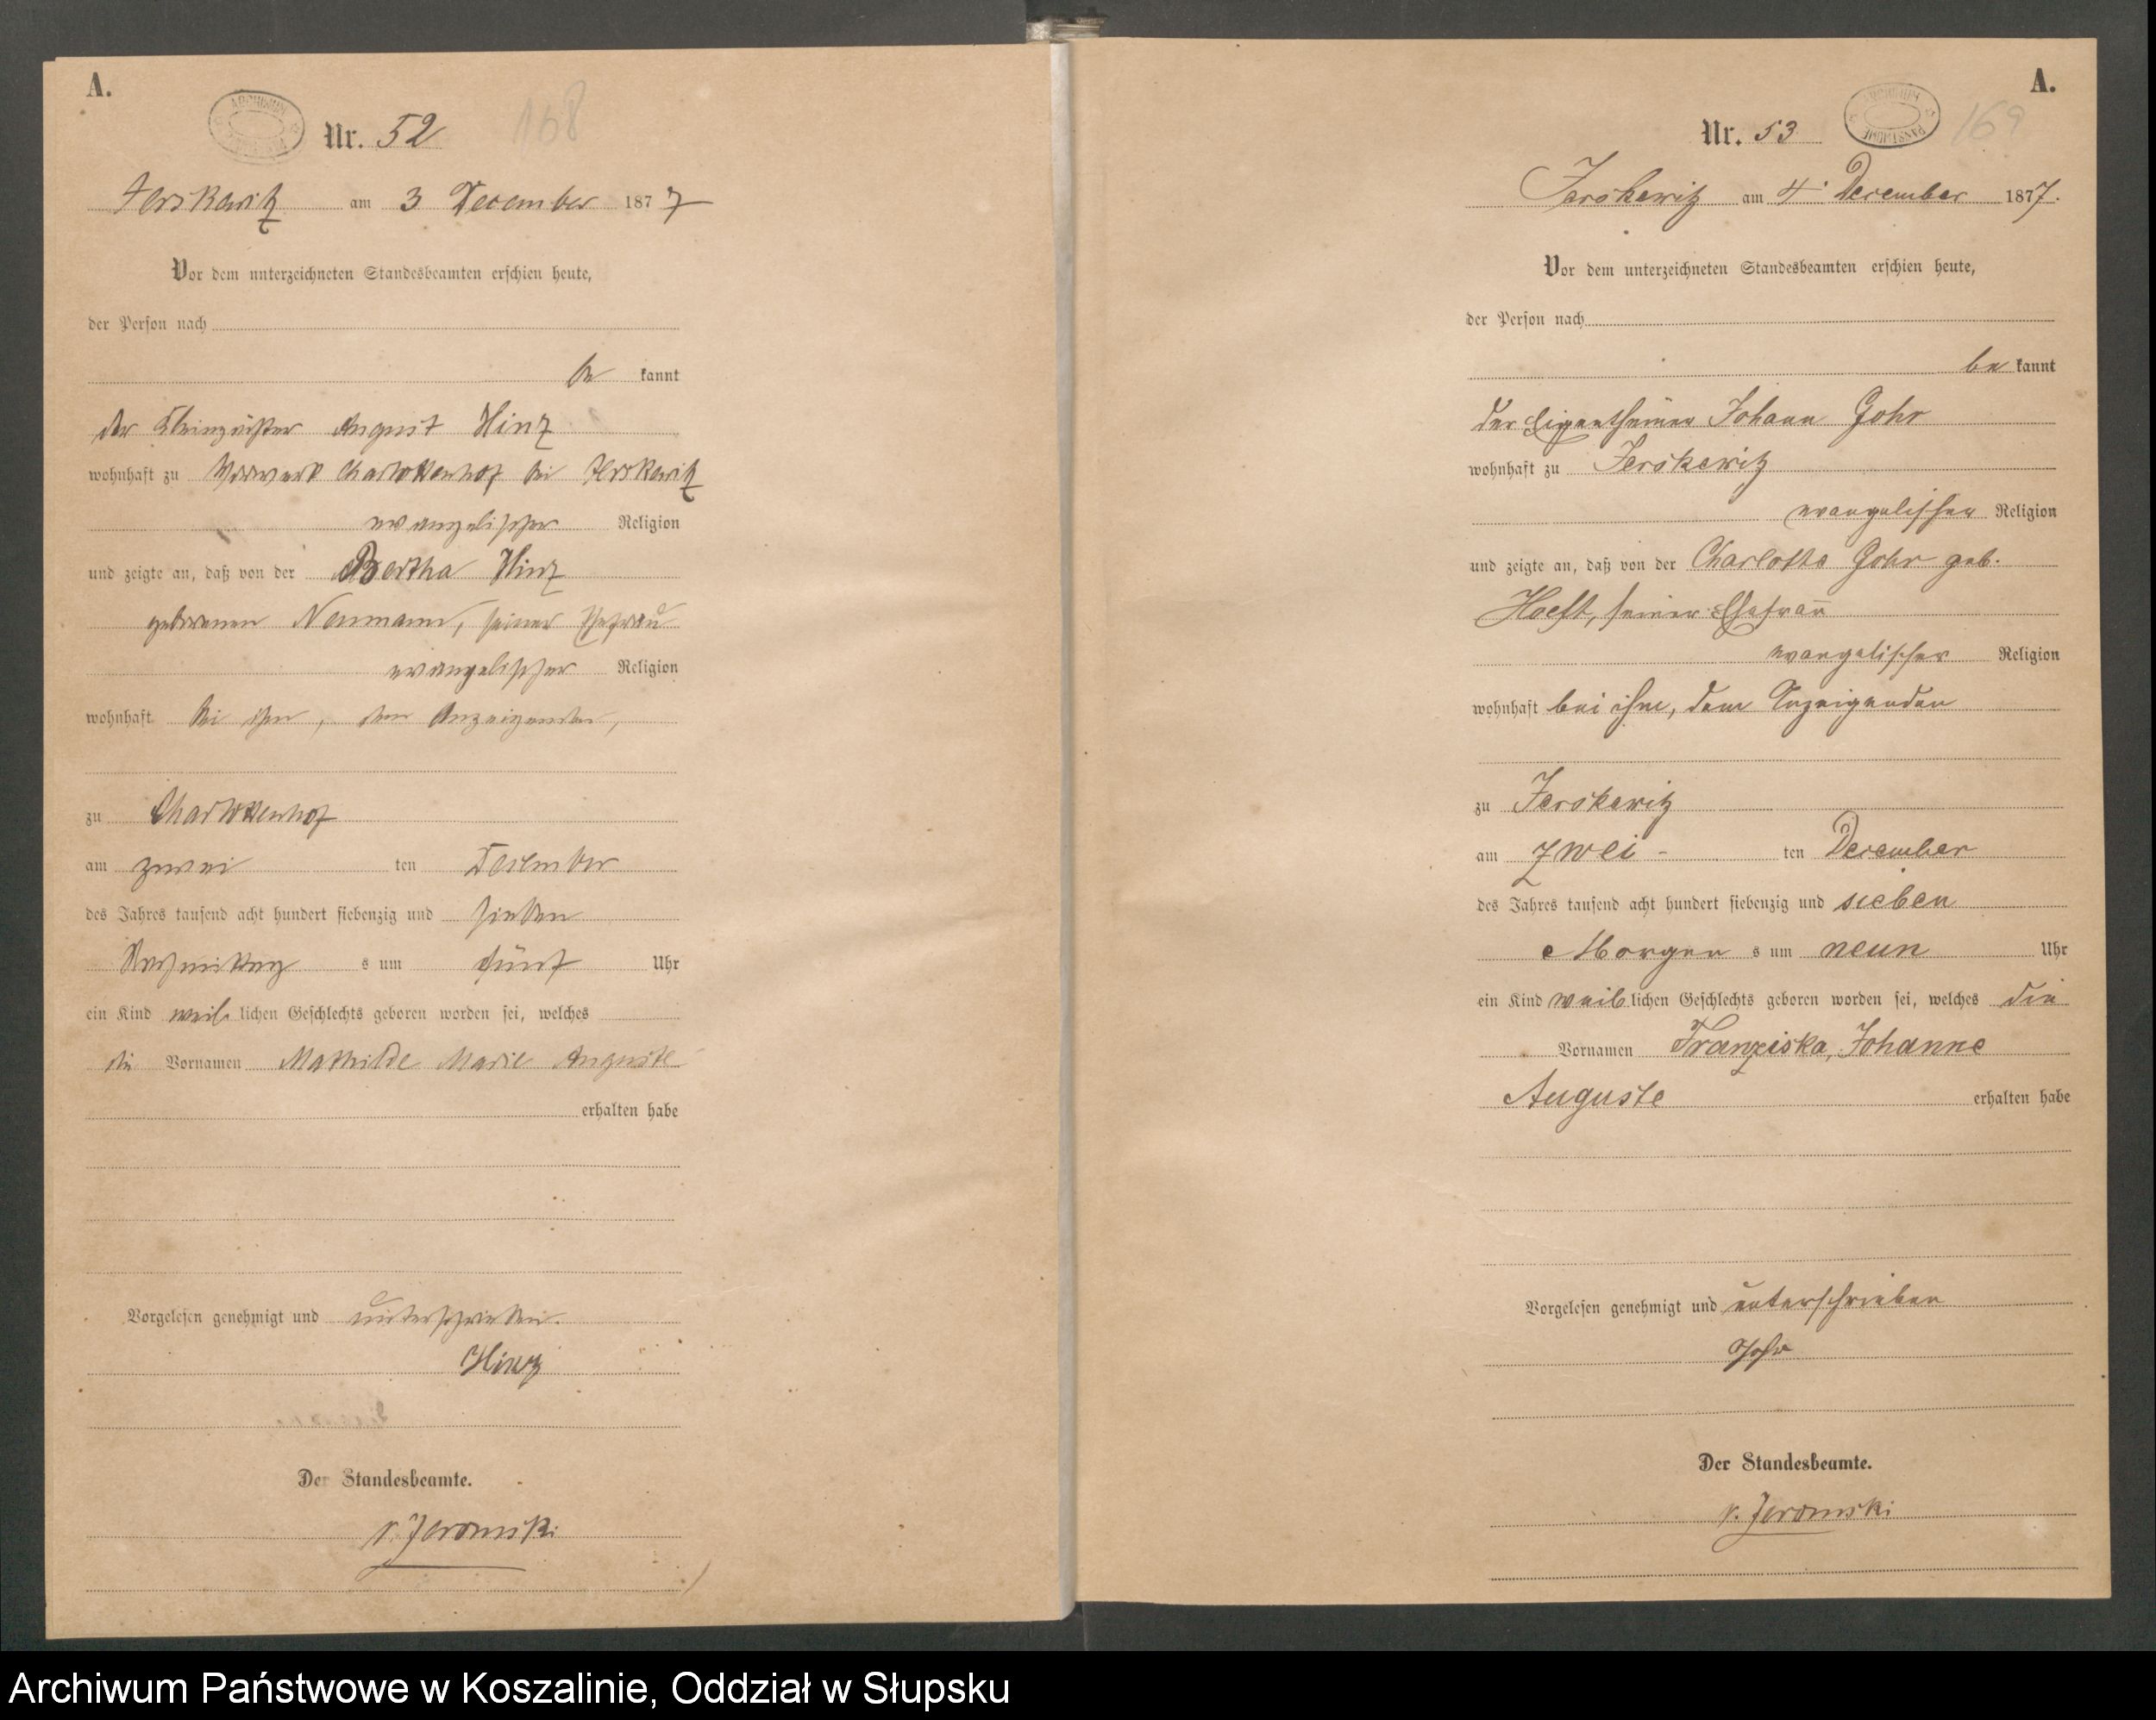 A.
ARCHIWUM
Nr. 52
168
Jerskewitz am 3 December 1877
Vor dem unterzeichneten Standesbeamten erschien heute,
der Person nach
be kannt
der August Hinz
wohnhaft zu Vorwerk Charlottenhof bei Jerskewitz
evangelischer Religion
und zeigte an, daß von der Bertha Hinz
geborenen Neumann, seiner Ehefrau
evangelischer Religion
wohnhaft bei ihm, dem Anzeigenden,
zu Charlottenhof
am zwei ten December
des Jahres tausend acht hundert siebenzig und sieben
Nachmittag s um fünf Uhr
ein Kind weib lichen Geschlechts geboren worden sei, welches
die Vornamen Mathilde Marie Auguste
erhalten habe
Vorgelesen genehmigt und unterschrieben.
Hinz
Der Standesbeamte.
v. Jeromski
A.
ARCHIWUM PAŃSTWOWE
Nr. 53
169
Jerskewitz am 4. December 1877.
Vor dem unterzeichneten Standesbeamten erschien heute,
der Person nach
be kannt
der Eigenthümer Johann Gohr
wohnhaft zu Jerskewitz
evangelischer Religion
und zeigte an, daß von der Charlotte Gohr geb.
Hoeft, seiner Ehefrau
evangelischer Religion
wohnhaft bei ihm, dem Anzeigenden
zu Jerskewitz
am zwei - ten December
des Jahres tausend acht hundert siebenzig und sieben
Morgen s um neun Uhr
ein Kind weib lichen Geschlechts geboren worden sei, welches die
Vornamen Franziska, Johanne
Auguste erhalten habe
Vorgelesen genehmigt und unterschrieben
Gohr
Der Standesbeamte.
v. Jeromski
Archiwum Państwowe w Koszalinie, Oddział w Słupsku